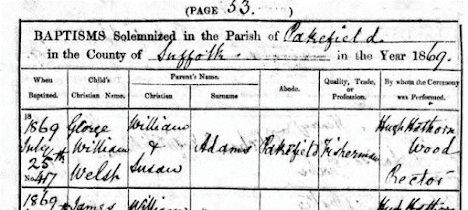 (PAGE 53.)
BAPTISMS Solemnized in the Parish of Pakefield
in the County of Suffolk in the Year 1869.
When Baptized. Child's Christian Name. Parent's Name. Christian Surname Abode. Quality, Trade, or Profession. By whom the Ceremony was Performed.
18
1869 George William Hugh Hathorn
July William & Adams Pakefield Fisherman Wood
25th Welsh Susan Rector
No. 417
1869 James William Hugh Hathorn